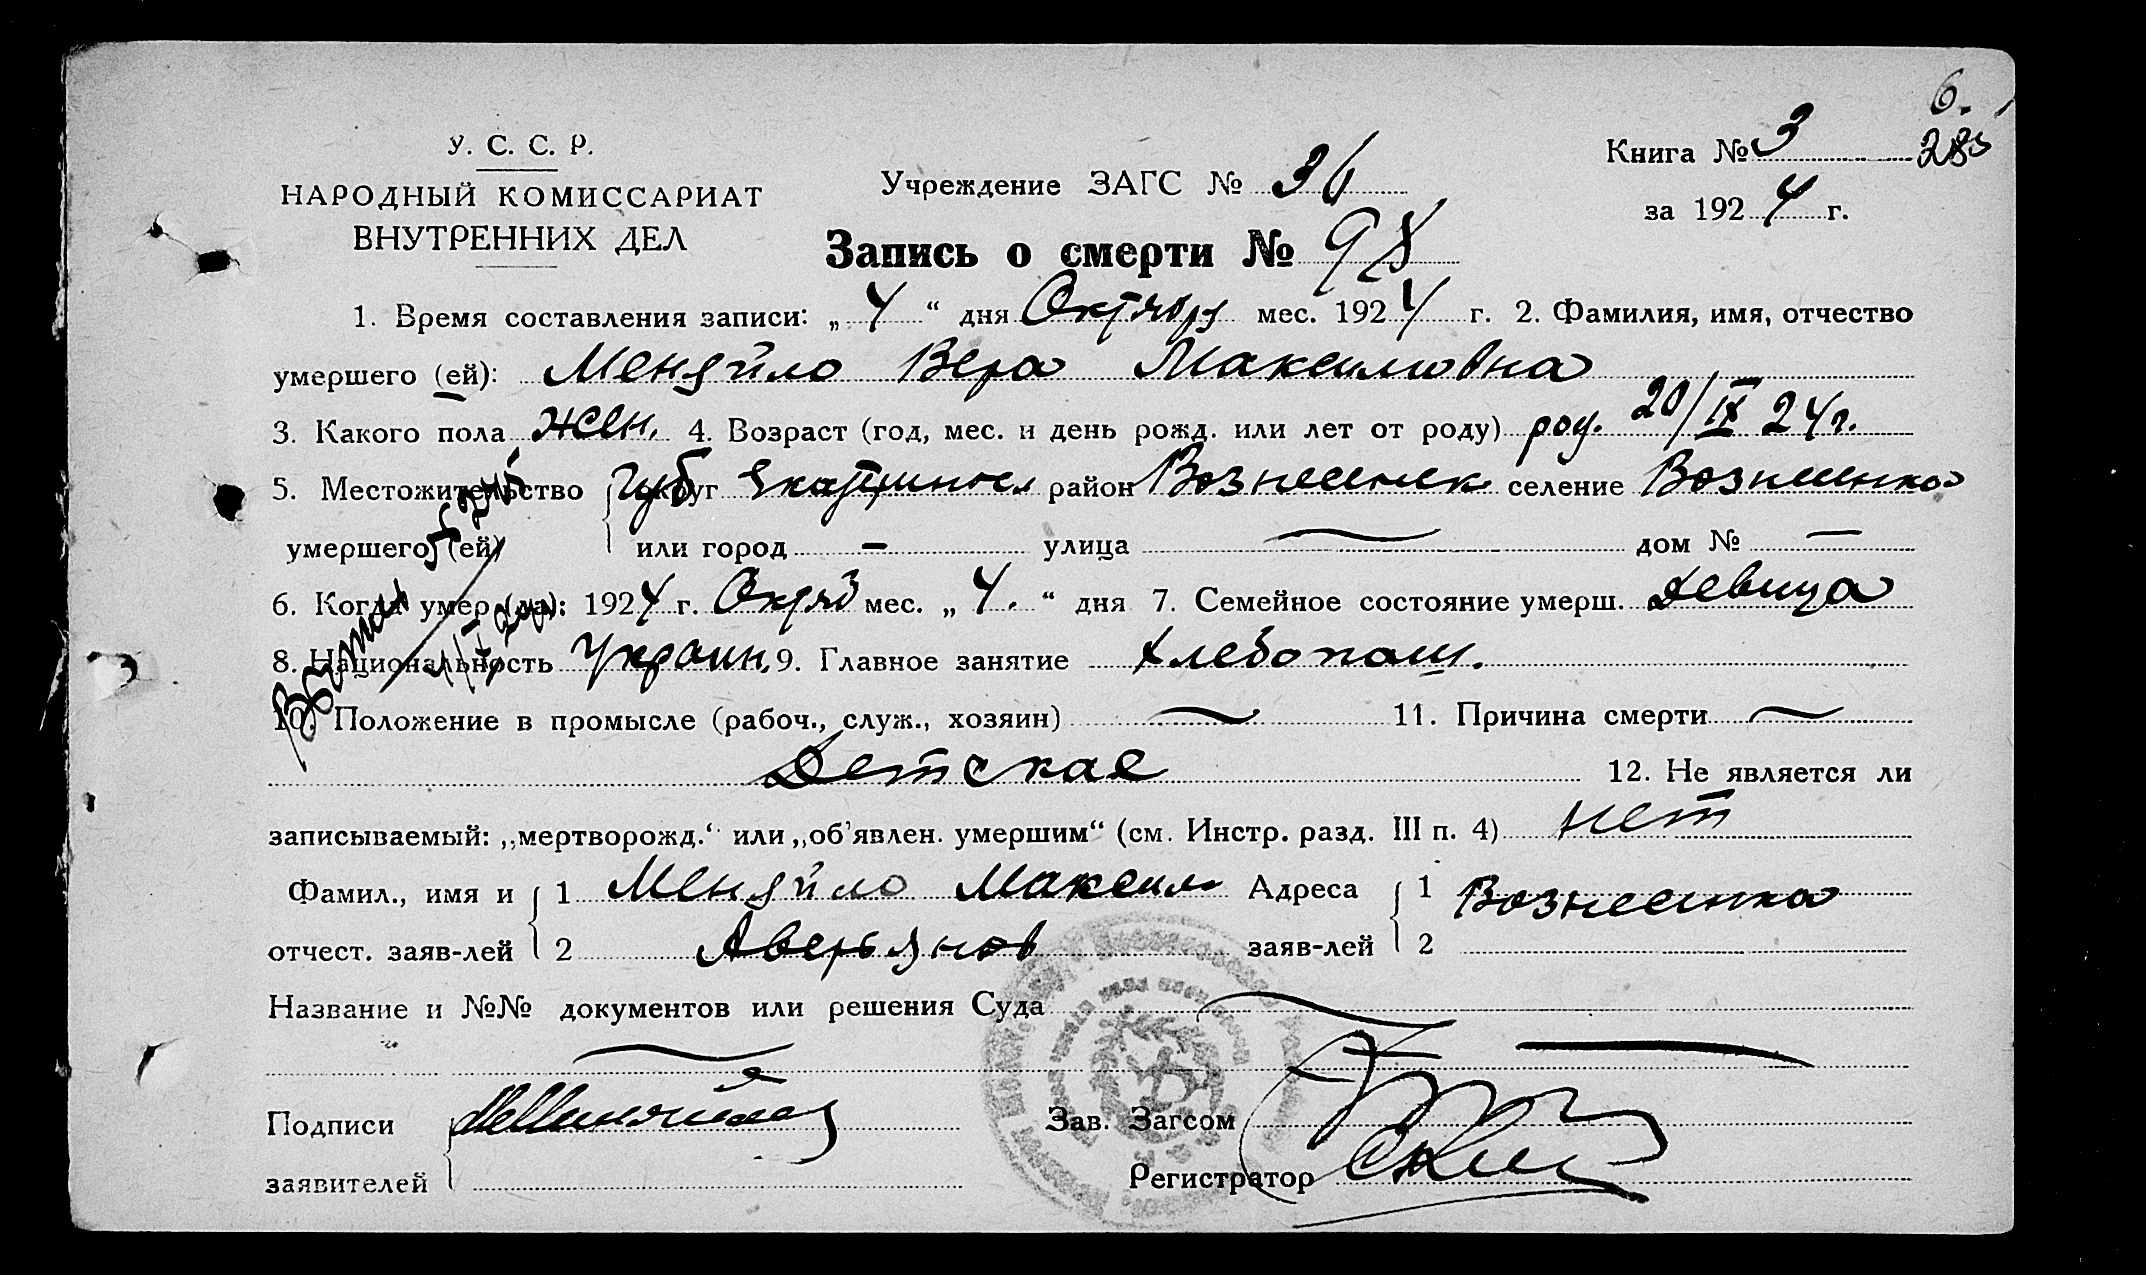 6.
283
У. С. С. Р.
НАРОДНЫЙ КОМИССАРИАТ
ВНУТРЕННИХ ДЕЛ
Учреждение ЗАГС № 36
Книга № 3
за 1924 г.
Запись о смерти № 98
1. Время составления записи: „4“ дня Октябр мес. 1924 г. 2. Фамилия, имя, отчество
умершего (ей): Меняйло Вера Максимовна
3. Какого пола жен. 4. Возраст (год, мес. и день рожд. или лет от роду) род. 20/IX 24 г.
5. Местожительство Губ округ Екатериносл район Вознесенск селение Вознесенка
умершего (ей) или город — улица — дом № —
6. Когда умер (ла): 1924 г. Октяб мес. „4.“ дня 7. Семейное состояние умерш. девица
8. Национальность Украин. 9. Главное занятие хлебопаш.
10. Положение в промысле (рабоч., служ., хозяин) — 11. Причина смерти —
Детская 12. Не является ли
записываемый: „мертворожд.“ или „об'явлен. умершим“ (см. Инстр. разд. III п. 4) нет
Фамил., имя и 1 Меняйло Максим Адреса 1 Вознесенка
отчест. заяв-лей 2 Аверьянов заяв-лей 2
Название и №№ документов или решения Суда —
Подписи Зав. Загсом
заявителей Регистратор